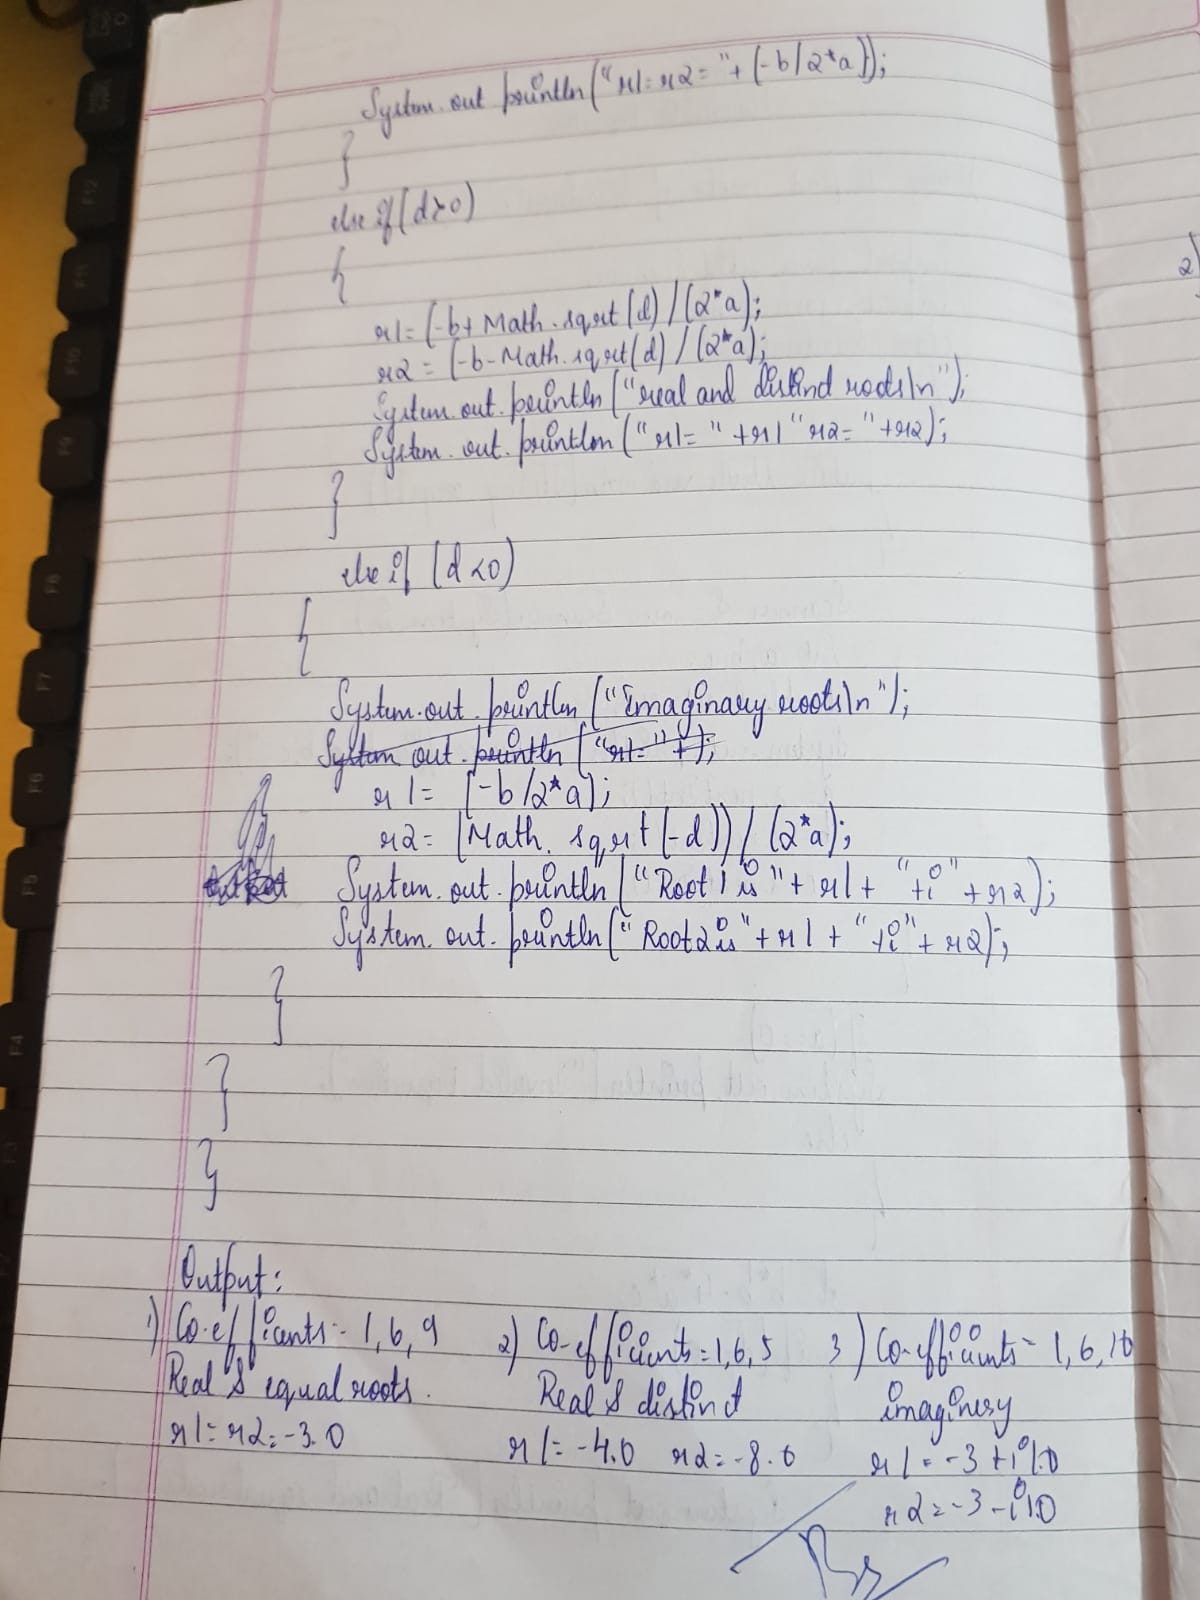 System.out println("r1=r2= "+(-b/2*a));
}
else if(d>0)
{
r1=(-b+Math.sqrt(d)/(2*a);
r2=(-b-Math.sqrt(d)/(2*a);
System.out.println("real and distind roots\n");
System.out.println("r1= "+r1 "r2= "+r2);
}
else if (d<0)
{
System.out.println("Imaginary roots\n");
System out.println("r1= "+);
r1= (-b/2*a);
r2= (Math. sqrt(-d))/(2*a);
System.out.println("Root 1 is "+ r1+ "+i" +r2);
System.out.println("Root2 is "+r1+ "+i"+r2);
}
}
}
2)
Output:
1) Co-efficients:- 1, 6, 9
Real & equal roots.
r1=r2=-3.0
2) Co-efficients=1, 6, 5
Real & distinct
r1=-4.0 r2=-8.0
3) Co-efficients= 1, 6, 10
imaginery
r1=-3+i1.0
r2=-3-i1.0